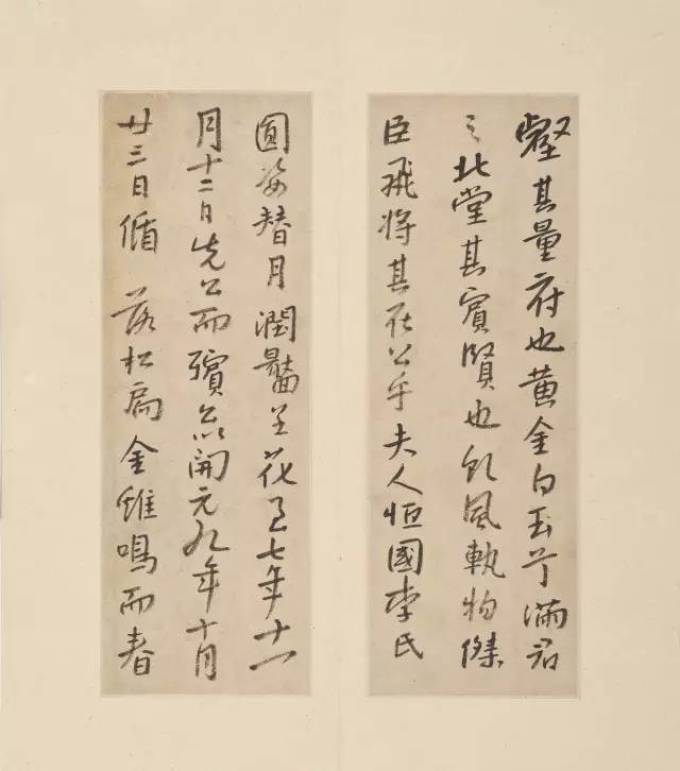 壑其量府也黄金白玉滿君
之北堂其賓賢也風執物傑
臣飛將其在公乎夫人恒國李氏
圓姿替月潤呈花七年十一
月十二日先公而殯以開元九年十月
廿三日循 落松扃金雉鳴而春